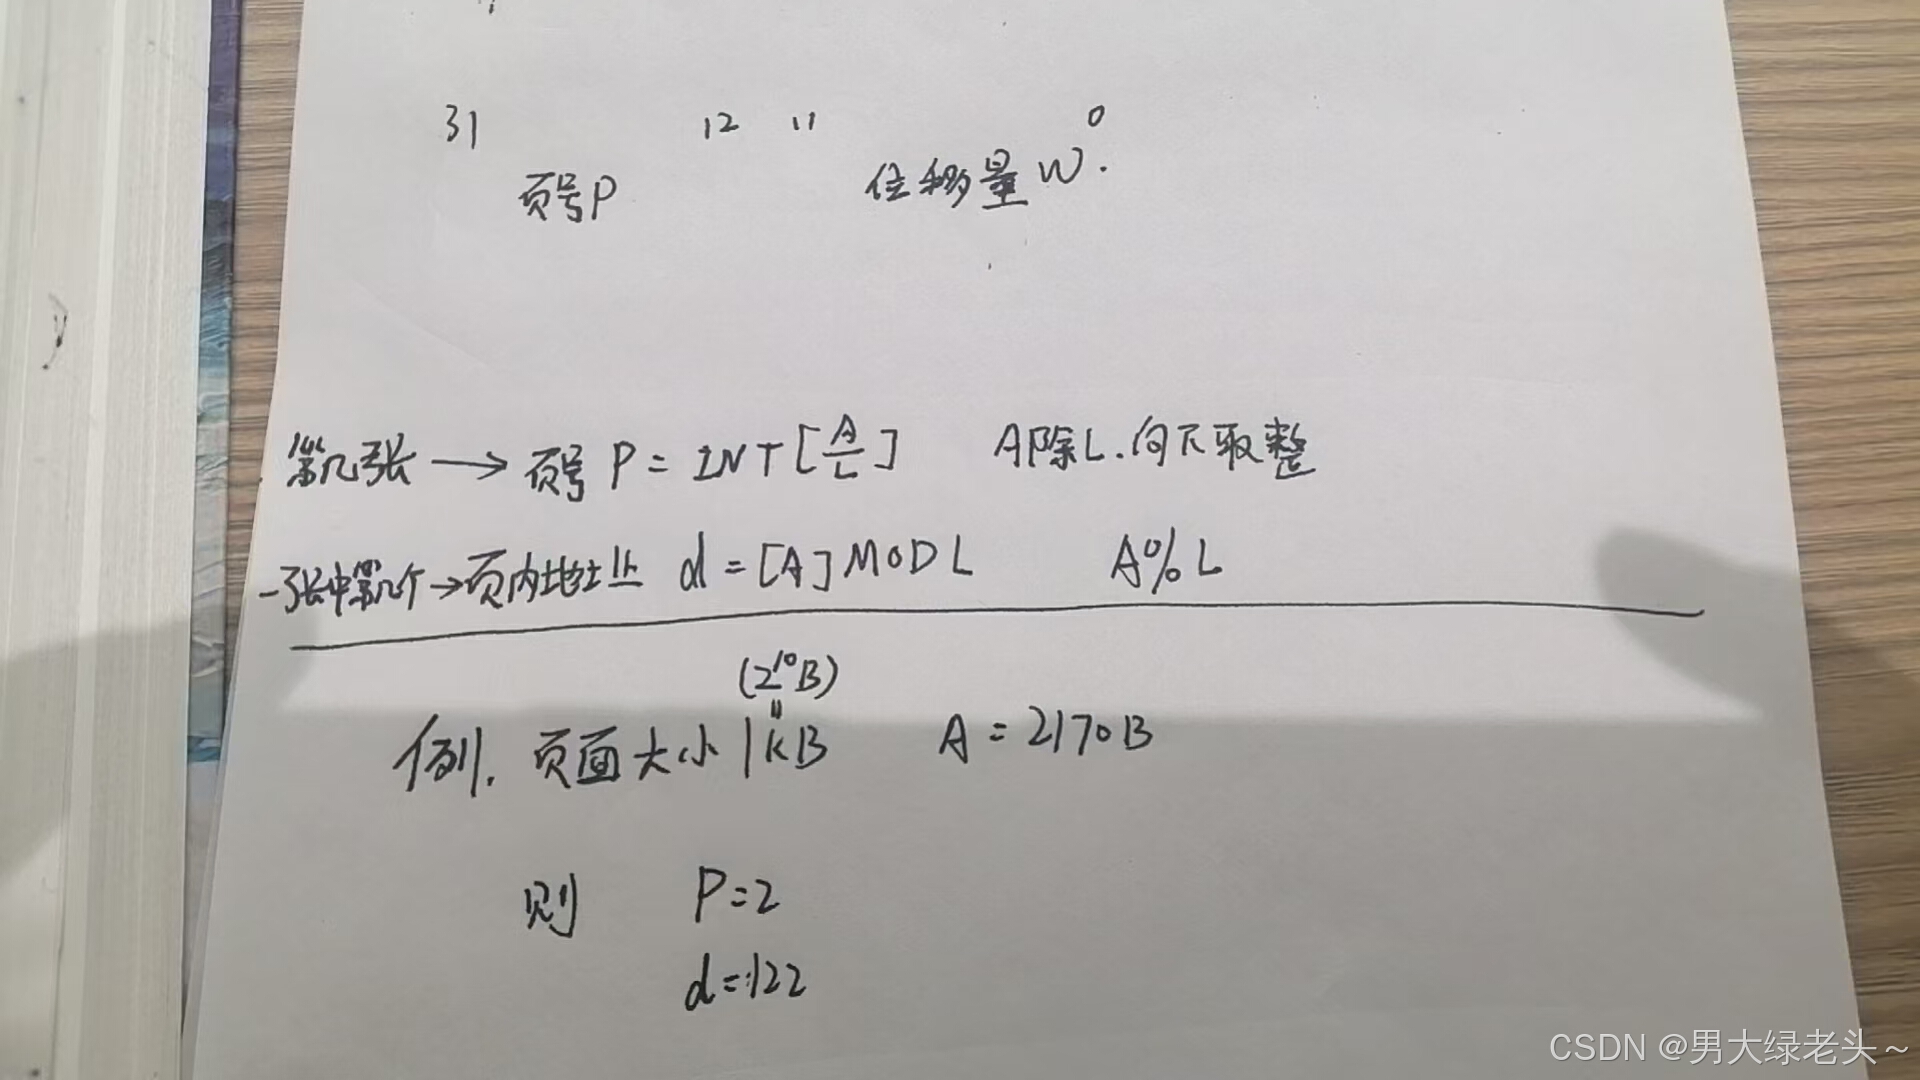 31 12 11 0
页号P 位移量W.
第几张 → 页号 P = INT[A/L] A除L.向下取整
一张中第几个→页内地址 d = [A] MOD L A%L
(2^10B)
=
例. 页面大小 1KB A = 2170B
则 P=2
d=122
CSDN @男大绿老头~